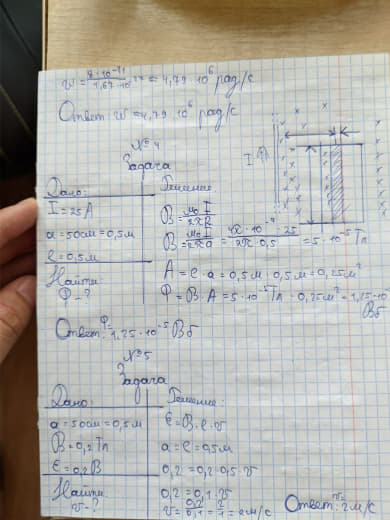 w = 8·10⁻¹¹ / 1,67·10⁻¹⁷ = 4,79·10⁶ рад/с
Ответ w = 4,79·10⁶ рад/с
№4
Задача
Дано:
I = 25 А
a = 50см = 0,5м
ℓ = 0,5м
Найти:
Ф - ?
Решение:
B = μ₀I / 2πR
B = μ₀I / 2πa = 4π·10⁻⁷·25 / 2π·0,5 = 5·10⁻⁵ Тл
A = ℓ·a = 0,5м·0,5м = 0,25м²
Ф = B·A = 5·10⁻⁵Тл·0,25м² = 1,25·10⁻⁵
Вб
I
Ответ: Ф = 1,25·10⁻⁵ Вб
№5
Задача
Дано:
a = 50см = 0,5м
B = 0,2 Тл
ℰ = 0,2 В
Найти
v - ?
Решение:
ℰ = B·ℓ·v
a = ℓ = 0,5м
0,2 = 0,2·0,5·v
0,2 = 0,1·v
v = 0,2/0,1 = 2/1 = 2м/с
Ответ: v = 2м/с